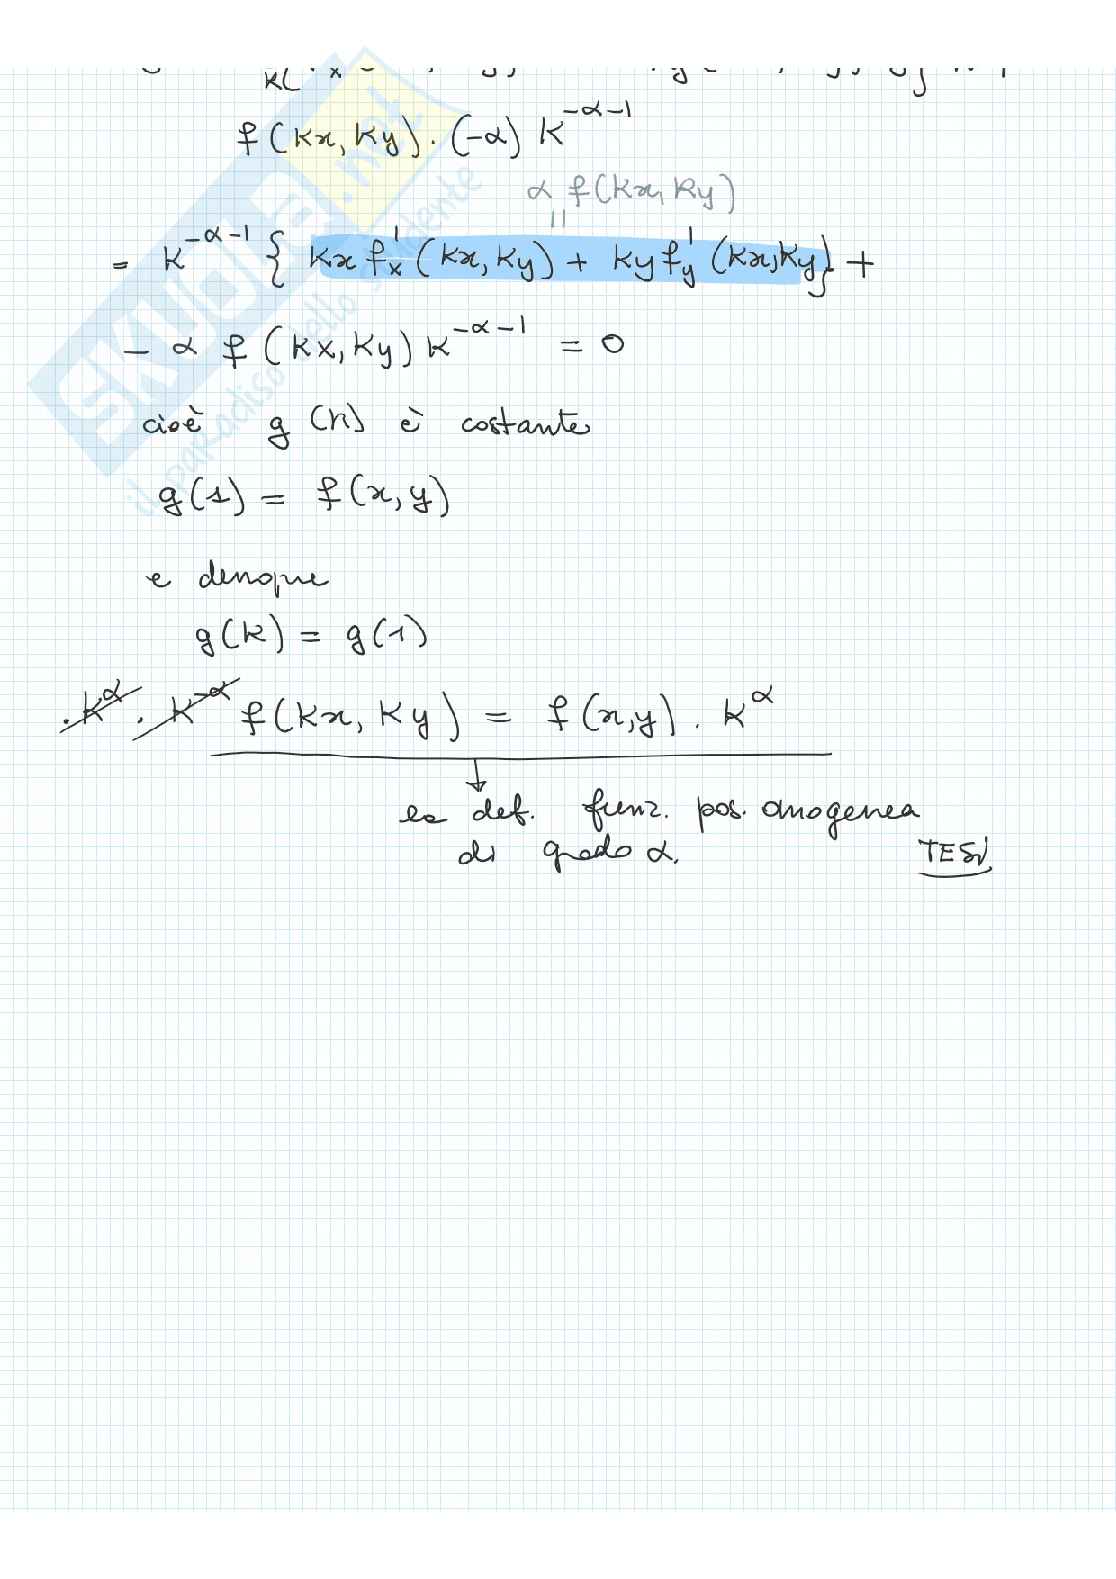 f(kx, ky) · (-α) k^{-α-1}
α f(kx, ky)
||
= k^{-α-1} { kx f'_x (kx, ky) + ky f'_y (kx, ky) } +
- α f (kx, ky) k^{-α-1} = 0
cioè g (k) è costante
g(1) = f(x, y)
e dunque
g(k) = g(1)
· k^α · k^{-α} f(kx, ky) = f(x, y) · k^α
↓
es def. funz. pos. omogenea
di grado α. TESI
SKUOLA.net
il paradiso dello studente